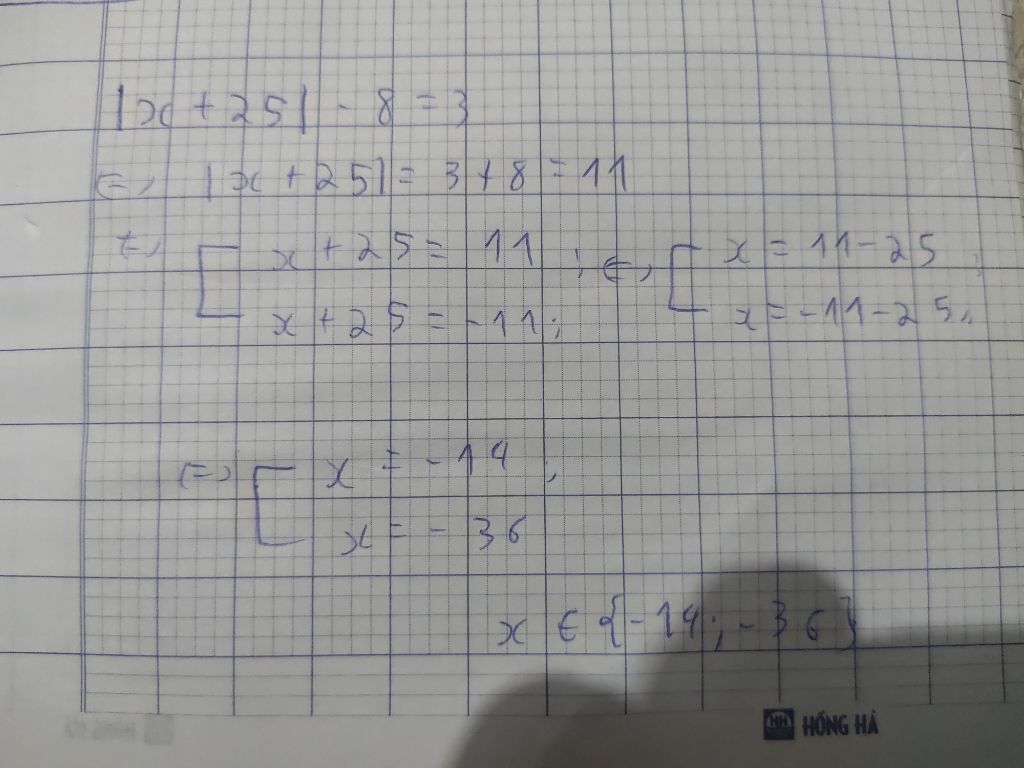 |x + 25| - 8 = 3
<=> |x + 25| = 3 + 8 = 11
<=> [ x + 25 = 11 ; <=> [ x = 11 - 25 ;
x + 25 = -11 ; x = -11 - 25 ;
<=> [ x = -14 ;
x = -36
x ∈ {-14 ; -36}
HH HỒNG HÀ